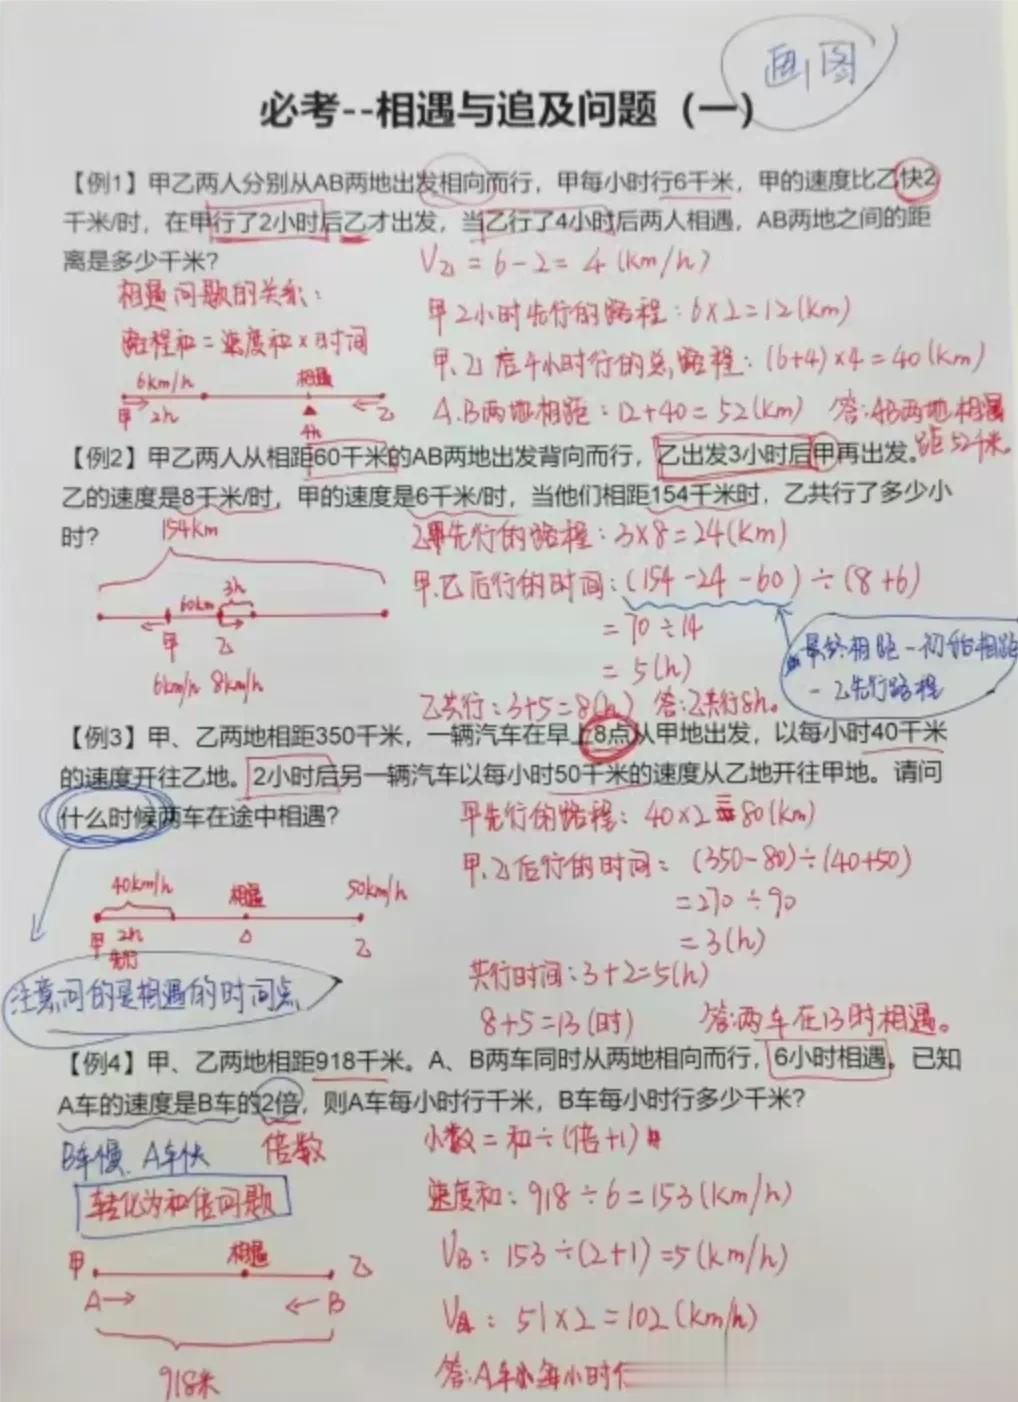 画图
必考--相遇与追及问题（一）
【例1】甲乙两人分别从AB两地出发相向而行，甲每小时行6千米，甲的速度比乙快2
千米/时，在甲行了2小时后乙才出发，当乙行了4小时后两人相遇，AB两地之间的距
离是多少千米？
V乙 = 6-2 = 4 (km/h)
相遇问题的关系：
甲2小时先行的路程：6×2=12(km)
路程和=速度和×时间
甲.乙后4小时行的总路程：(6+4)×4=40(km)
6km/h 相遇
甲 2h 4h 乙
A.B两地相距：12+40=52(km) 答:AB两地相遇
距52千米。
【例2】甲乙两人从相距60千米的AB两地出发背向而行，乙出发3小时后甲再出发。
乙的速度是8千米/时，甲的速度是6千米/时，当他们相距154千米时，乙共行了多少小
时？
154km
乙先行的路程：3×8=24(km)
甲.乙后行的时间：(154-24-60)÷(8+6)
60km 3h
甲 乙
6km/h 8km/h
=70÷14
=5(h)
最终相距-初始相距
-乙先行路程
乙共行：3+5=8(h) 答:乙共行8h。
【例3】甲、乙两地相距350千米，一辆汽车在早上8点从甲地出发，以每小时40千米
的速度开往乙地。2小时后另一辆汽车以每小时50千米的速度从乙地开往甲地。请问
什么时候两车在途中相遇？
甲先行的路程：40×2=80(km)
甲.乙后行的时间：(350-80)÷(40+50)
=270÷90
=3(h)
40km/h 相遇 50km/h
甲 2h 乙
先行
注意问的是相遇的时间点
共行时间：3+2=5(h)
8+5=13(时) 答:两车在13时相遇。
【例4】甲、乙两地相距918千米。A、B两车同时从两地相向而行，6小时相遇。已知
A车的速度是B车的2倍，则A车每小时行千米，B车每小时行多少千米？
B车慢、A车快 倍数
小数=和÷(倍+1)
转化为和倍问题
速度和：918÷6=153(km/h)
VB：153÷(2+1)=5(km/h)
VA：51×2=102(km/h)
甲 相遇 乙
A B
918米
答:A车每小时行